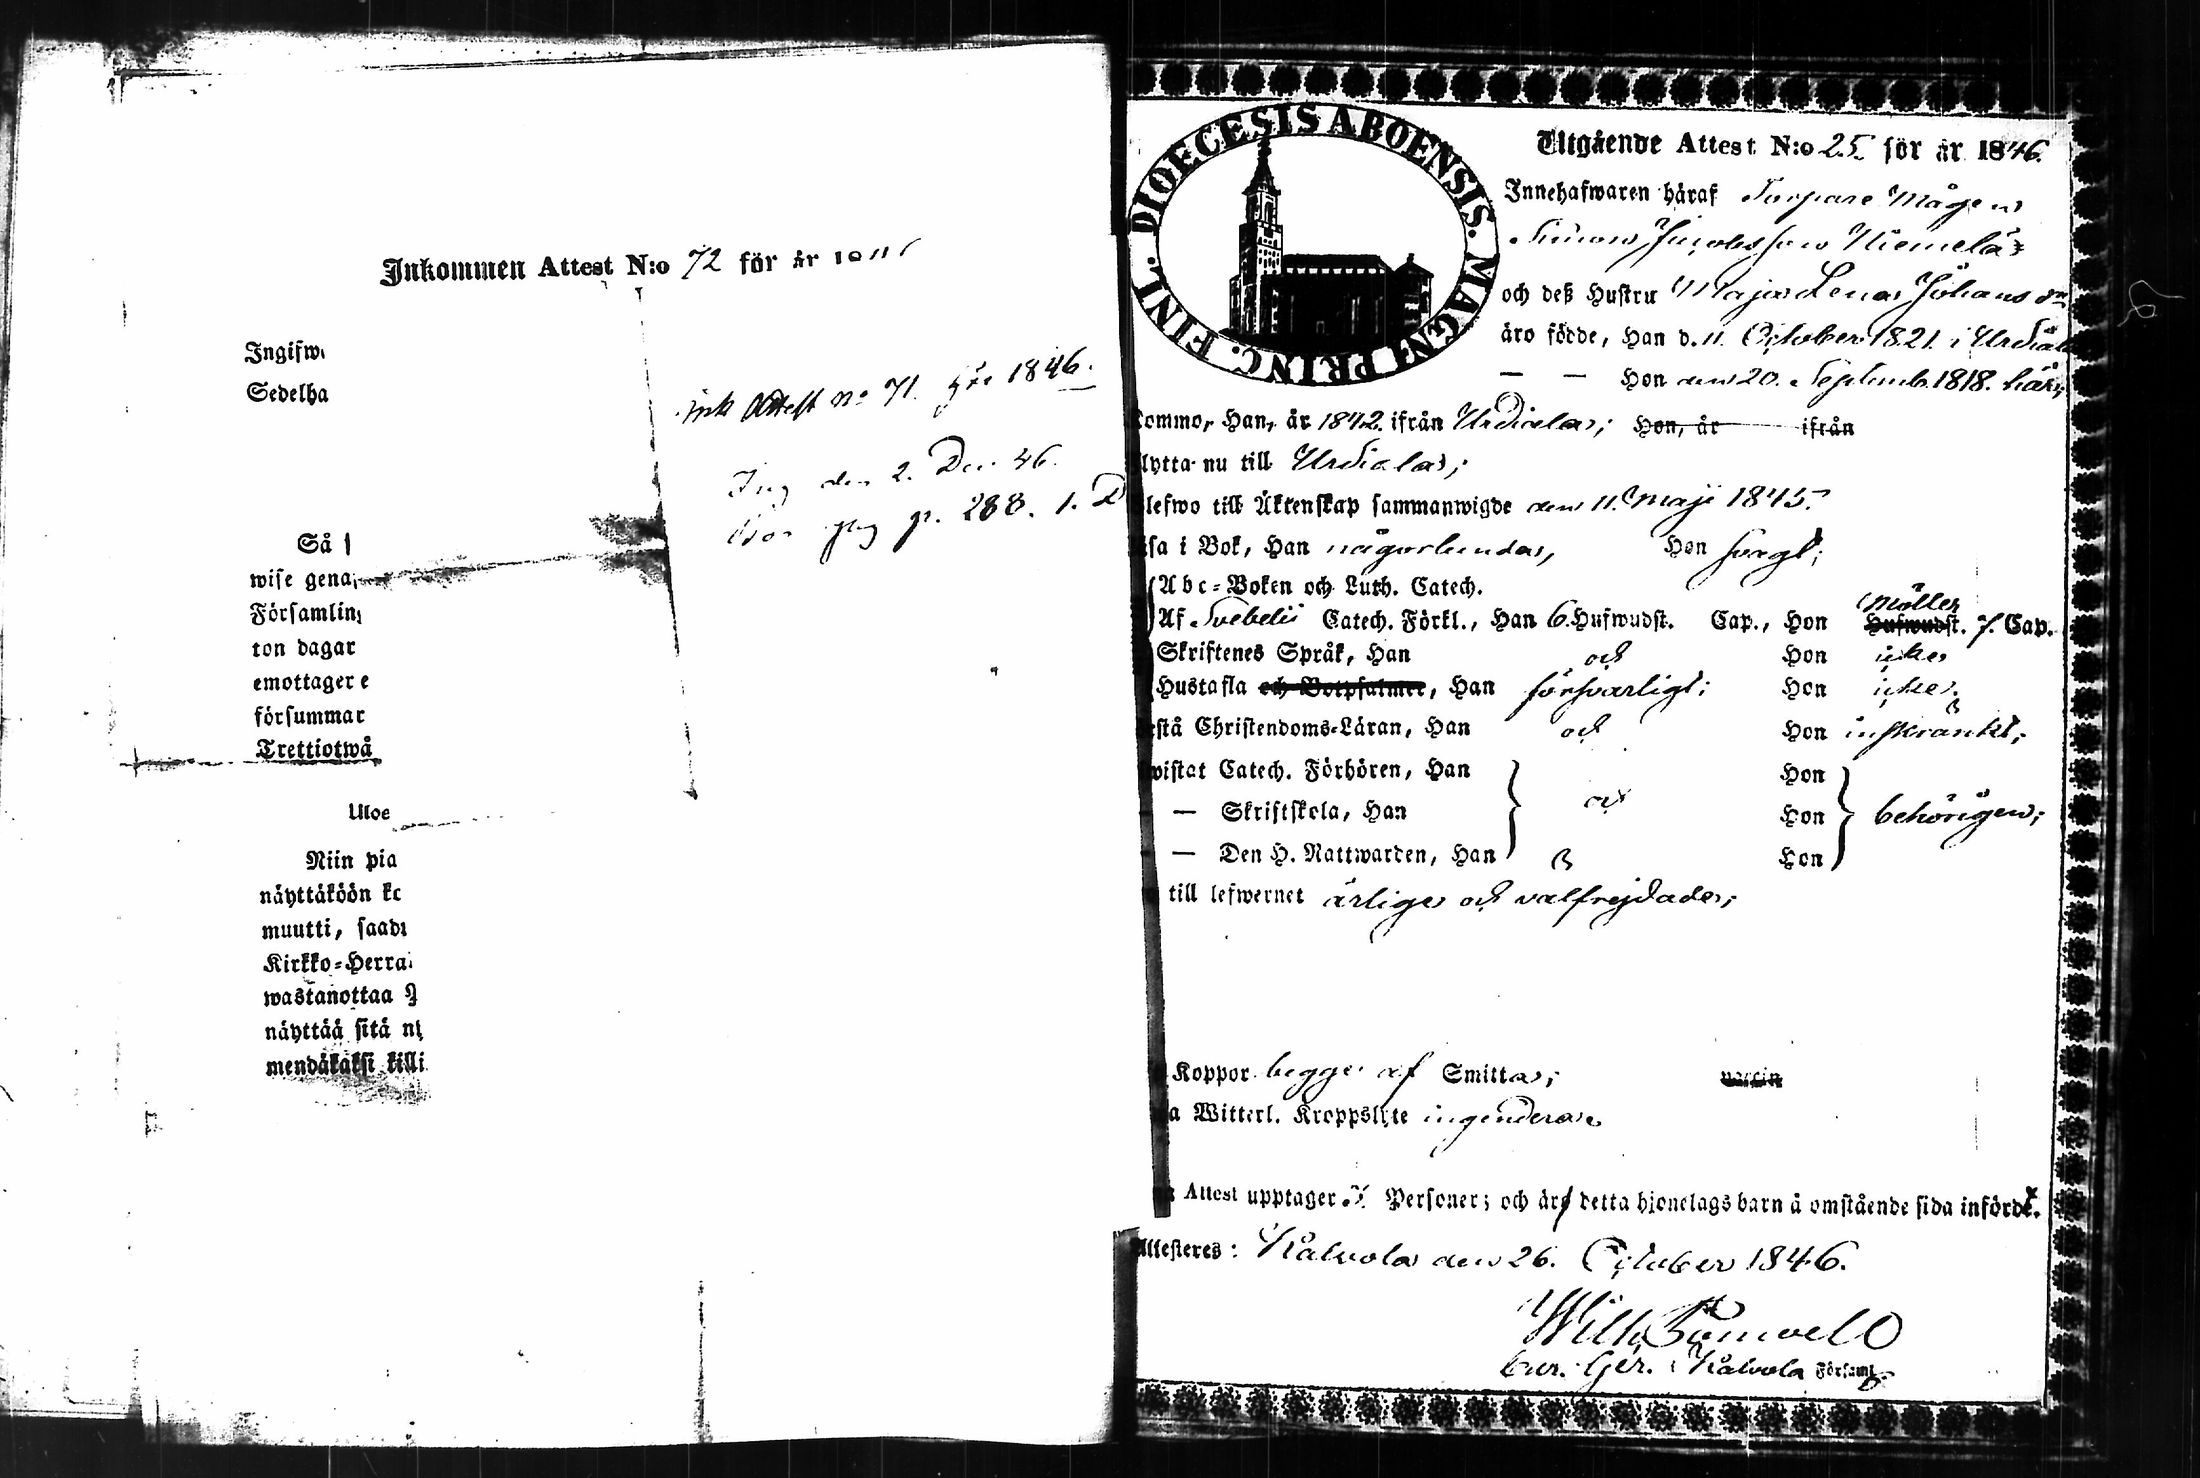 Inkommen Attest N:o 72 för år
Ingifw
Sedelha
Ink Attest No 71. för 1846.
Ing den 2. Dec 46.
p. 288. 1. D
Så
wise gena
Församlin
ton dagar
emottager e
försummar
Trettiotwå
Uloe
Niin pia
näyttäköön ko
muutti, saadu
Kirkko-Herra
wastanottaa
näyttää sitä ni
mendäkaksi killi
DIOECESIS ABOENSIS. MAGNI PRINC. FINL.
Utgående Attest N:o 25. för år 1846.
Innehafwaren häraf Torpare Mågen
Simon Jacobsson Niemelä
och deß Hustru Maja Lena Johans dr
äro födde, Han d. 11. October 1821. i Urdiala
— — Hon den 20. Septemb. 1818. här;
kommo, Han, år 1842. ifrån Urdiala; Hon, år ifrån
flytta nu till Urdiala;
blefwo till Äktenskap sammanwigde den 11. Maji 1845.
läsa i Bok, Han någorlunda, Hon svagt;
Abc-Boken och Luth. Catech.
Af Svebelii Catech. Förkl., Han 6. Hufwudst. Cap., Hon Möller Hufwudst. 7. Cap.
Skriftenes Språk, Han och Hon icke
Hustafla och Botpsalmer, Han försvarligt; Hon icke.
förstå Christendoms-Läran, Han och Hon inskränkt;
bewistat Catech. Förhören, Han Hon
— Skriftskola, Han och Hon behörigen;
— Den H. Nattwarden, Han Hon
till lefwernet ärliga och välfrejdade;
Koppor begge af Smitta;
Witterl. Kroppslyte ingendera
Attest upptager 2. Personer; och äro detta hjonelags barn å omstående sida införde.
Attesteras: Kalvola den 26. October 1846.
Wilh.
Cur. Ger. i Kalvola Församl.